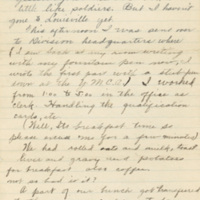 little like soldiers. But I haven't
gone to Louisville yet.
This afternoon I was sent over
to Division headquarters where
(I am back and am now writing
with my fountain pen now, I
wrote the first part with a stub pen
over at the Y.M.C.A.) I worked
from 1:00 to 5:00 in the office as
clerk. Handling the qualification
cards, etc.
Well, its breakfast time so
please excuse me for a few minutes)
We had rolled oats and milk, toast
liver and gravy and potatoes
for breakfast also coffee.
not so bad is it?
A part of our bunch got transferred